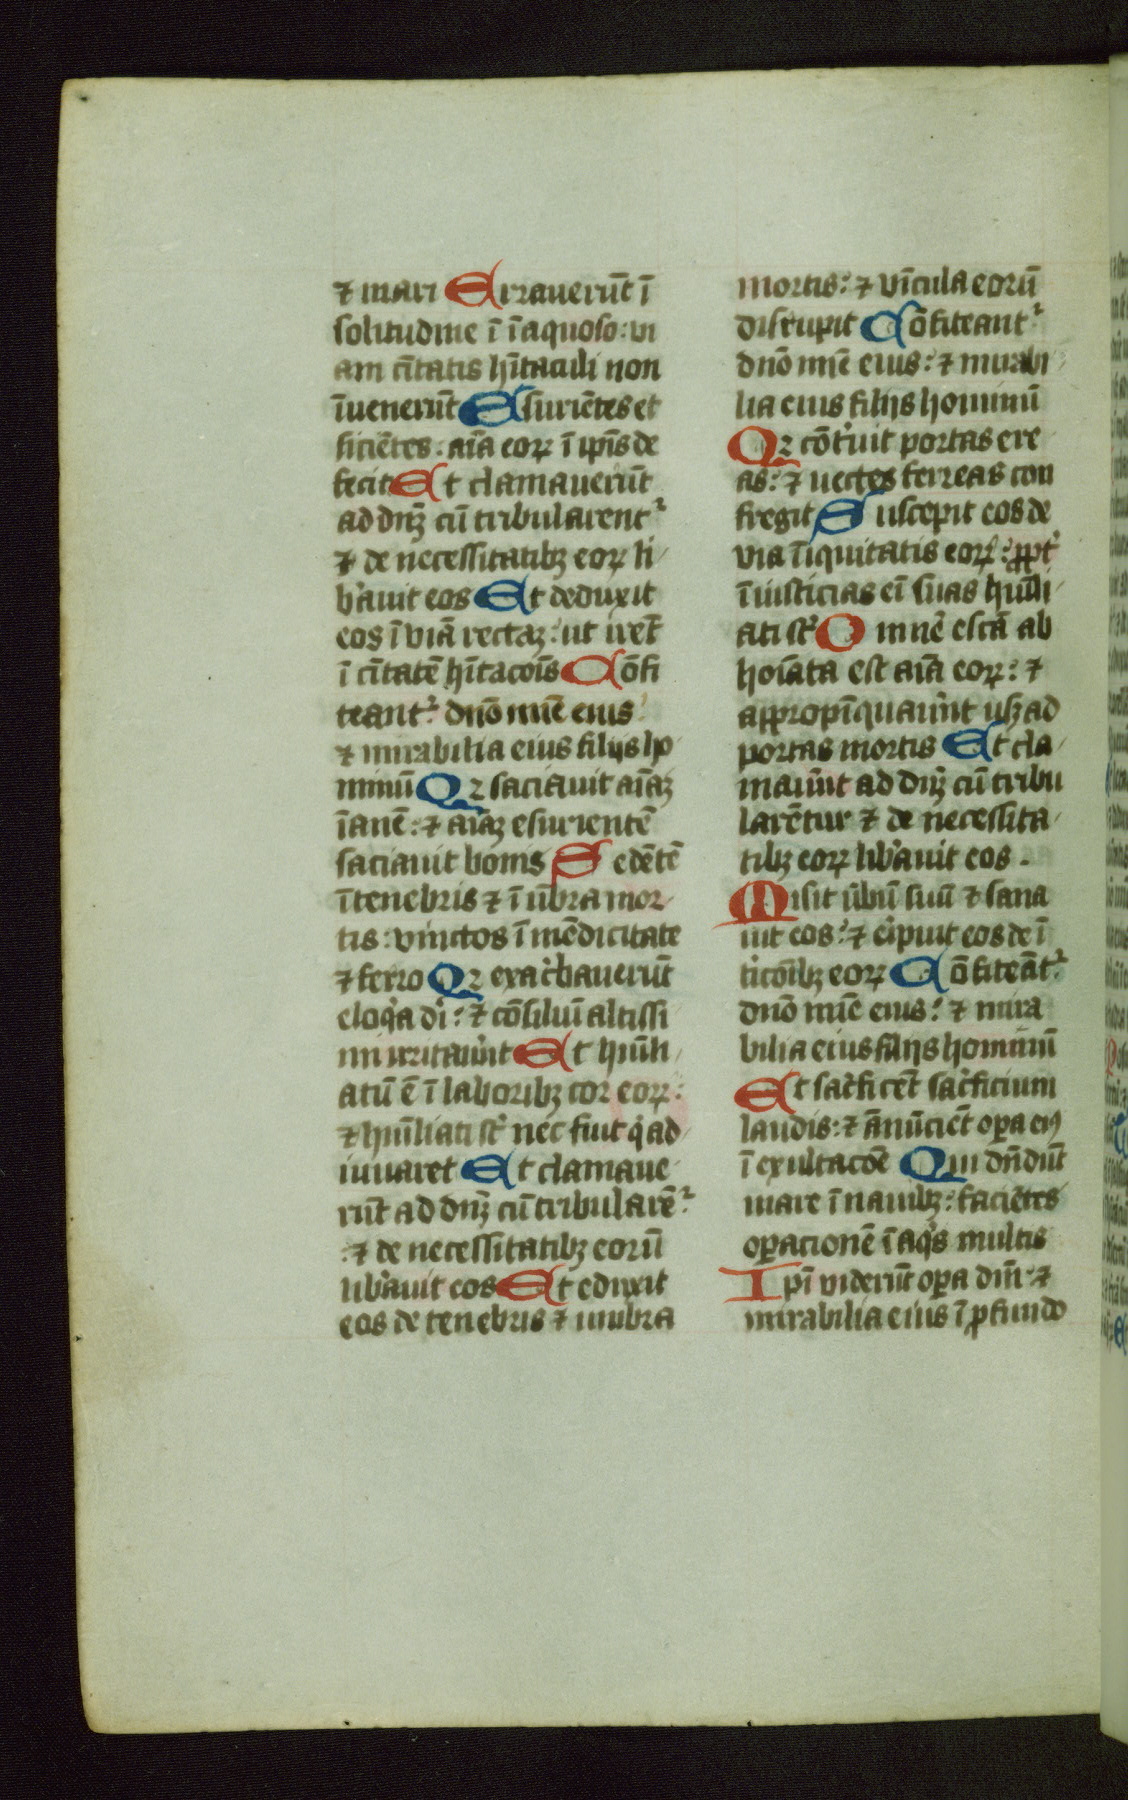 ⁊ mari Erraueru̅t i̅
solitudine i̅ i̅aquoso: ui
am ci̅tatis hi̅taculi non
i̅uenerūt Esurie̅tes et
sicie̅tes: ai̅a eoꝝ i̅ ip̅is de
fecit Et clamauerūt
ad dn̅ꝫ cū tribularentᷣ
⁊ de necessitatibꝫ eoꝝ li
b̓auit eos Et deduxit
eos i̅ uia̅ rectaꝫ: ut ire̅t
i̅ ci̅tate̅ hi̅tacoi̅s Co̅fi
teantᷣ dno̅ mie̅ eius:
⁊ mirabilia eius filijs ho
minū Qꝛ saciauit ai̅aꝫ
i̅ane̅: ⁊ ai̅aꝫ esuriente̅
saciauit bonis Sede̅te̅
i̅ tenebris ⁊ i̅ u̅bra mor
tis: vinctos i̅ me̅dicitate
⁊ ferro Qꝛ exac̓bauerūt
eloq̓a di̅: ⁊ co̅siliū altissi
mi irritau̓nt Et hūili
atū e̅ i̅ laboribꝫ cor eoꝝ:
⁊ hūiliati st̓ nec fuit q̓ ad
iuuaret Et clamaue
rūt ad dn̅ꝫ cū tribulare̅ᷣ
: ⁊ de necessitatibꝫ eorū
lib̓auit eos Et eduxit
eos de tenebris ⁊ umbra
mortis: ⁊ vi̅cula eorū
disrupit Co̅fiteantᷣ
dno̅ mie̅ eius: ⁊ mirabi
lia eius filijs hominū
Qꝛ co̅t̓uit portas ere
as: ⁊ uectes ferreas con
fregit Suscepit eos de
via i̅iquitatis eoꝝ: ꝓpt̓
i̅iusticias ei̅ suas hūili
ati st̓ Omne̅ esca̅ ab
hoi̅ata est ai̅a eoꝝ: ⁊
appropi̅quau̓nt usꝫ ad
portas mortis Et cla
mau̓nt ad dn̅ꝫ cū tribu
lare̅tur ⁊ de necessita
tibꝫ eoꝝ lib̓auit eos.
Misit u̅bū suū ⁊ sana
uit eos: ⁊ e̓ipuit eos de i̅
t̓ico̅ibꝫ eoꝝ Co̅fitea̅tᷣ
dno̅ mie̅ eius: ⁊ mira
bilia eius filijs hominū
Et sac̓fice̅t sac̓ficium
laudis: ⁊ a̅nūcie̅t oꝑa eiꝰ
i̅ exultaco̅e Qui dn̅dūt
mare i̅ nauibꝫ: facie̅tes
oꝑacione̅ i̅ aq̓s multis
Ipi̅ viderūt oꝑa dn̅i: ⁊
mirabilia eius i̅ ꝓfundo